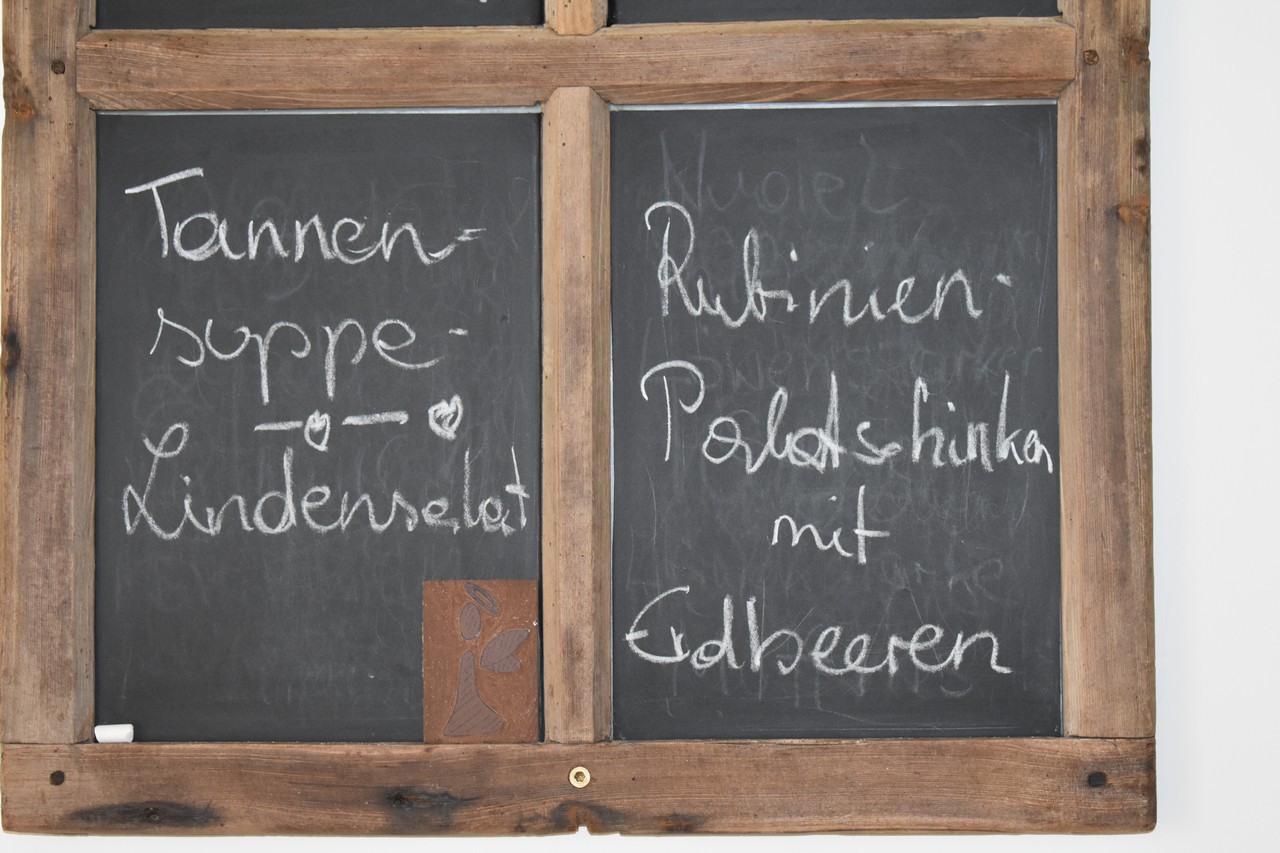 Tannen-
suppe-
Lindensalat
Rubinien-
Palatschinken
mit
Erdbeeren